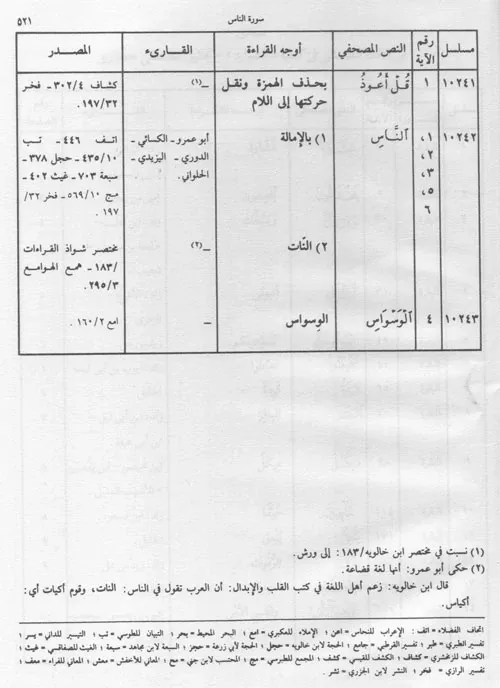 سورة الناس ٥٢١
مسلسل رقم الآية النص المصحفي أوجه القراءة القارىء المصدر
١٠٢٤١ ١ قُلْ أَعُوذُ بحذف الهمزة ونقل ــ(١) كشاف ٣٠٢/٤ ــ فخر
حركتها إلى اللام ١٩٧/٣٢.
١٠٢٤٢ ١، النَّاسِ ١) بالإمالة أبو عمرو ــ الكسائي ــ اتف ٤٤٦ ــ تب
٢، الدوري ــ اليزيدي ــ ٤٣٥/١٠ ــ حجل ٣٧٨ ــ
٣، الحلواني. سبعة ٧٠٣ ــ غيث ٤٠٢ ــ
٥، مج ٥٦٩/١٠ ــ فخر ٣٢/
٦ ١٩٧.
٢) النّات ــ(٢) مختصر شواذ القراءات
/١٨٣ ــ همع الهوامع
٢٩٥/٣.
١٠٢٤٣ ٤ الْوَسْوَاسِ الوِسواس ــ امع ١٦٠/٢.
(١) نسبت في مختصر ابن خالويه/١٨٣: إلى ورش.
(٢) حكى أبو عمرو: أنها لغة قضاعة.
قال ابن خالويه: زعم أهل اللغة في كتب القلب والإبدال: أن العرب تقول في الناس: النات، وقوم أكيات أي:
أكياس.
اتحاف الفضلاء = اتف؛ الإعراب للنحاس = اعن؛ الإملاء للعكبري = امع؛ البحر المحيط = بحر؛ التبيان للطوسي = تب؛ التيسير للداني = يسر؛
تفسير الطبري = طبر؛ تفسير القرطبي = جامع؛ الحجة لابن خالويه = حجل؛ الحجة لأبي زرعة = حجز؛ السبعة لابن مجاهد = سبعة؛ الغيث للصفاقسي = غيث؛
الكشاف للزمخشري = كشاف؛ الكشف للقيسي = كشف؛ المجمع للطبرسي = مج؛ المحتسب لابن جني = مح؛ المعاني للأخفش = معش؛ المعاني للفراء = معف؛
تفسير الرازي = فخر؛ النشر لابن الجزري = نشر.